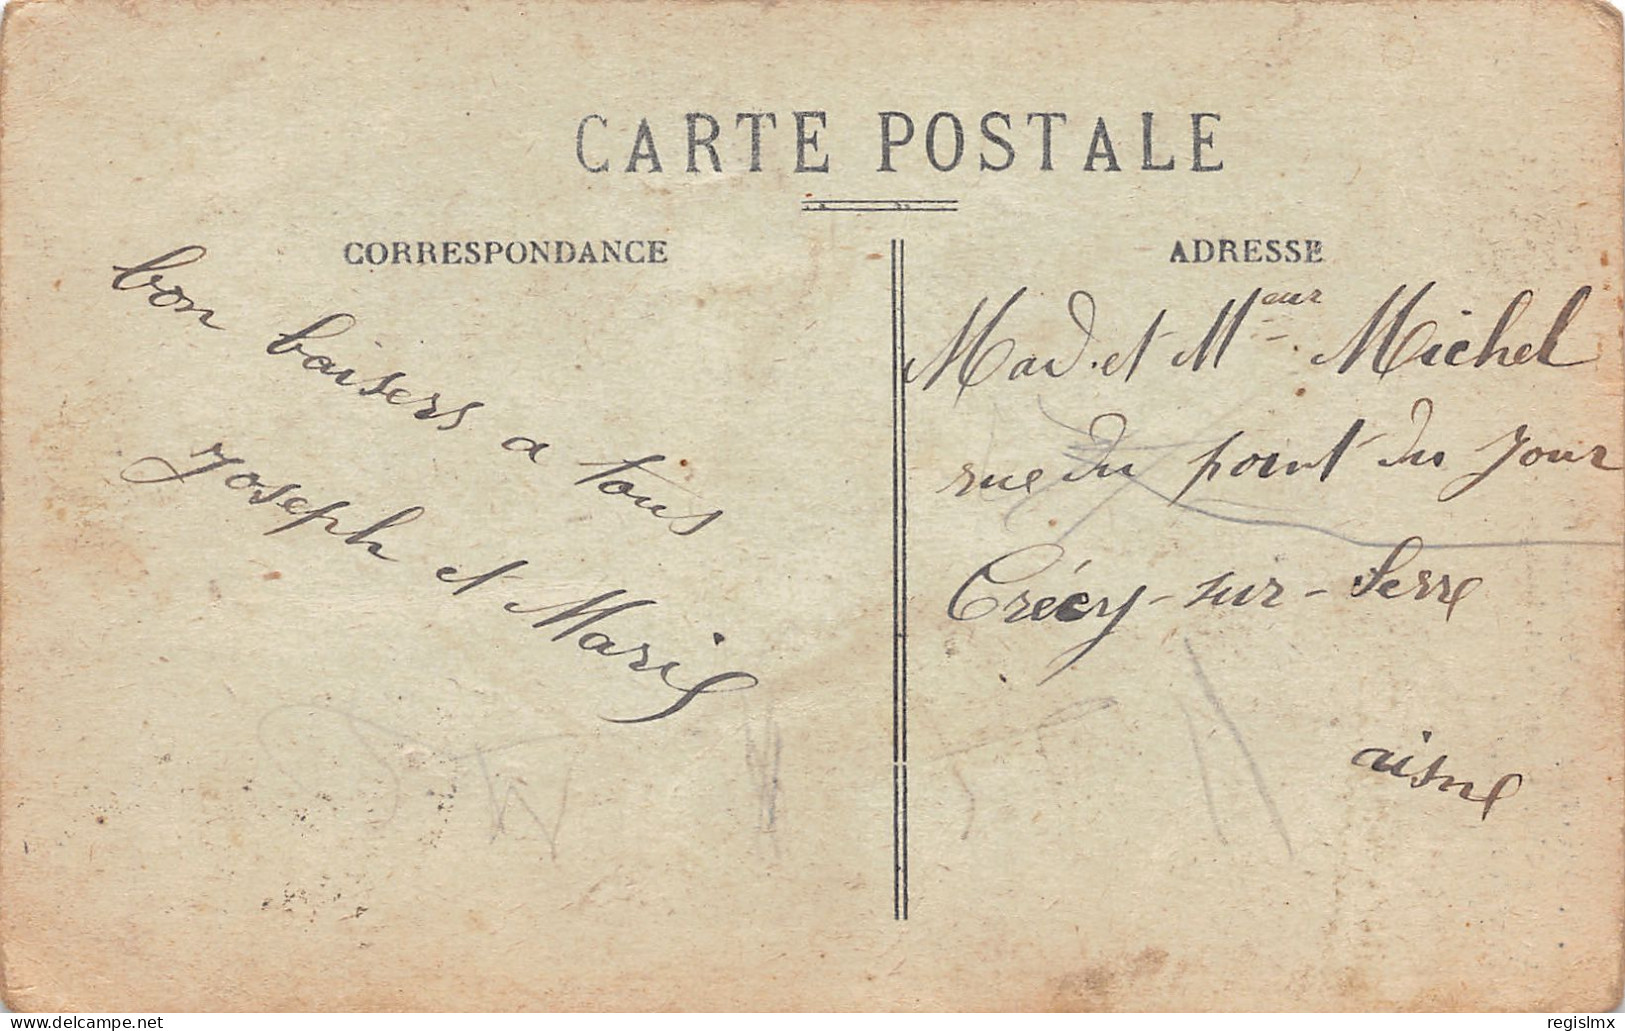 CARTE POSTALE
CORRESPONDANCE
bon baisers a tous
Joseph et Marie
ADRESSE
Mad. et Meur Michel
rue du point du Jour
Crécy-sur-Serre
aisne
www.delcampe.net
regislmx